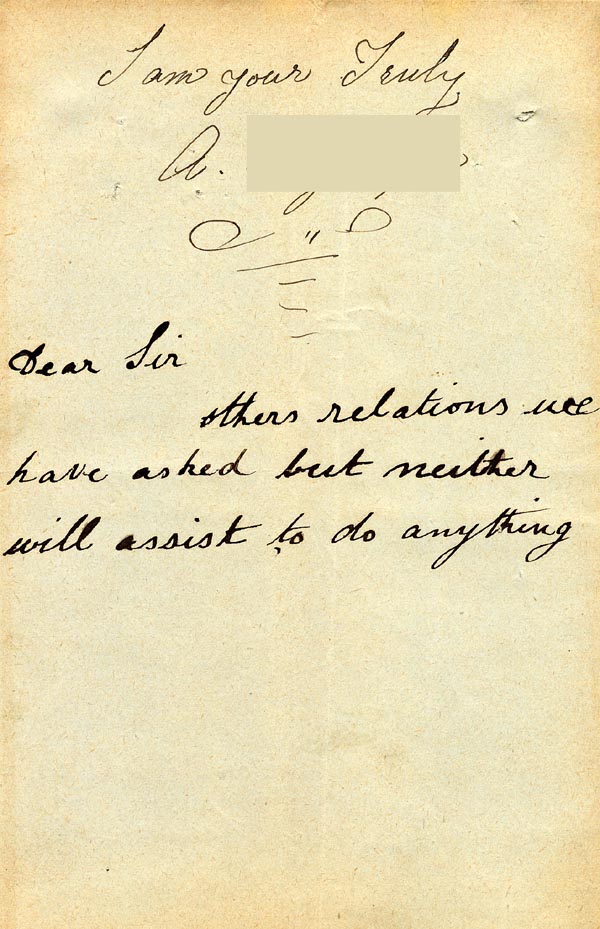 I am your Truly
A.
Dear Sir
others relations we
have asked but neither
will assist to do anything